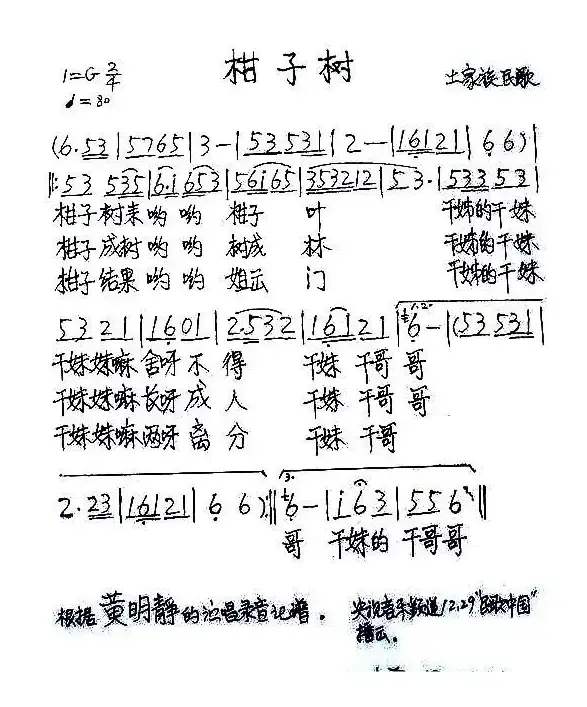 柑子树
1=G 2/4
♩=80
土家族民歌
(6.53|5765|3-|53531|2-|16121|66)|
‖:53 535|6.i653|56i65|353212|53.|53353|
柑子树来哟哟 柑子 叶 干妹的干妹
柑子成树哟哟 树成 林 干妹的干妹
柑子结果哟哟 姐云 门 干妹的干妹
5321|1601|2.532|16121|6-|(53531|
干妹妹嘛舍呀不得 干妹干哥哥
干妹妹嘛长呀成人 干妹干哥哥
干妹妹嘛两呀离分 干妹干哥
1.2.
2.23|16121|66):‖6-|i63|556‖
3.
哥 干妹的干哥哥
根据黄明静的演唱录音记谱。
央视音乐频道12.29"民歌中国"
播出。